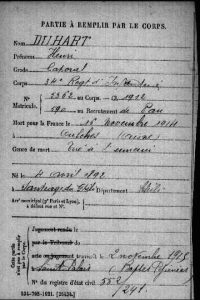 PARTIE À REMPLIR PAR LE CORPS.
Nom DUHART
Prénoms Henri
Grade Caporal
Corps 34e Régt d'Infanterie
N° 5362 au Corps. — Cl. 1912
Matricule. 690 au Recrutement de Pau
Mort pour la France le 15 novembre 1914
à Oulches (Aisne)
Genre de mort Tué à l'ennemi
Né le 4 avril 1892
à Santiago du Chili Département Chili
Arrt municipal (pr Paris et Lyon),
à défaut rue et N°.
Cette partie
n'est pas
à remplir
par le Corps.
Jugement rendu le
par le Tribunal de
acte ou jugement transcrit le 2 novembre 1915
à Saint Palais (Basses Pyrénées)
N° du registre d'état civil 552
534-708-1921. [26434.]